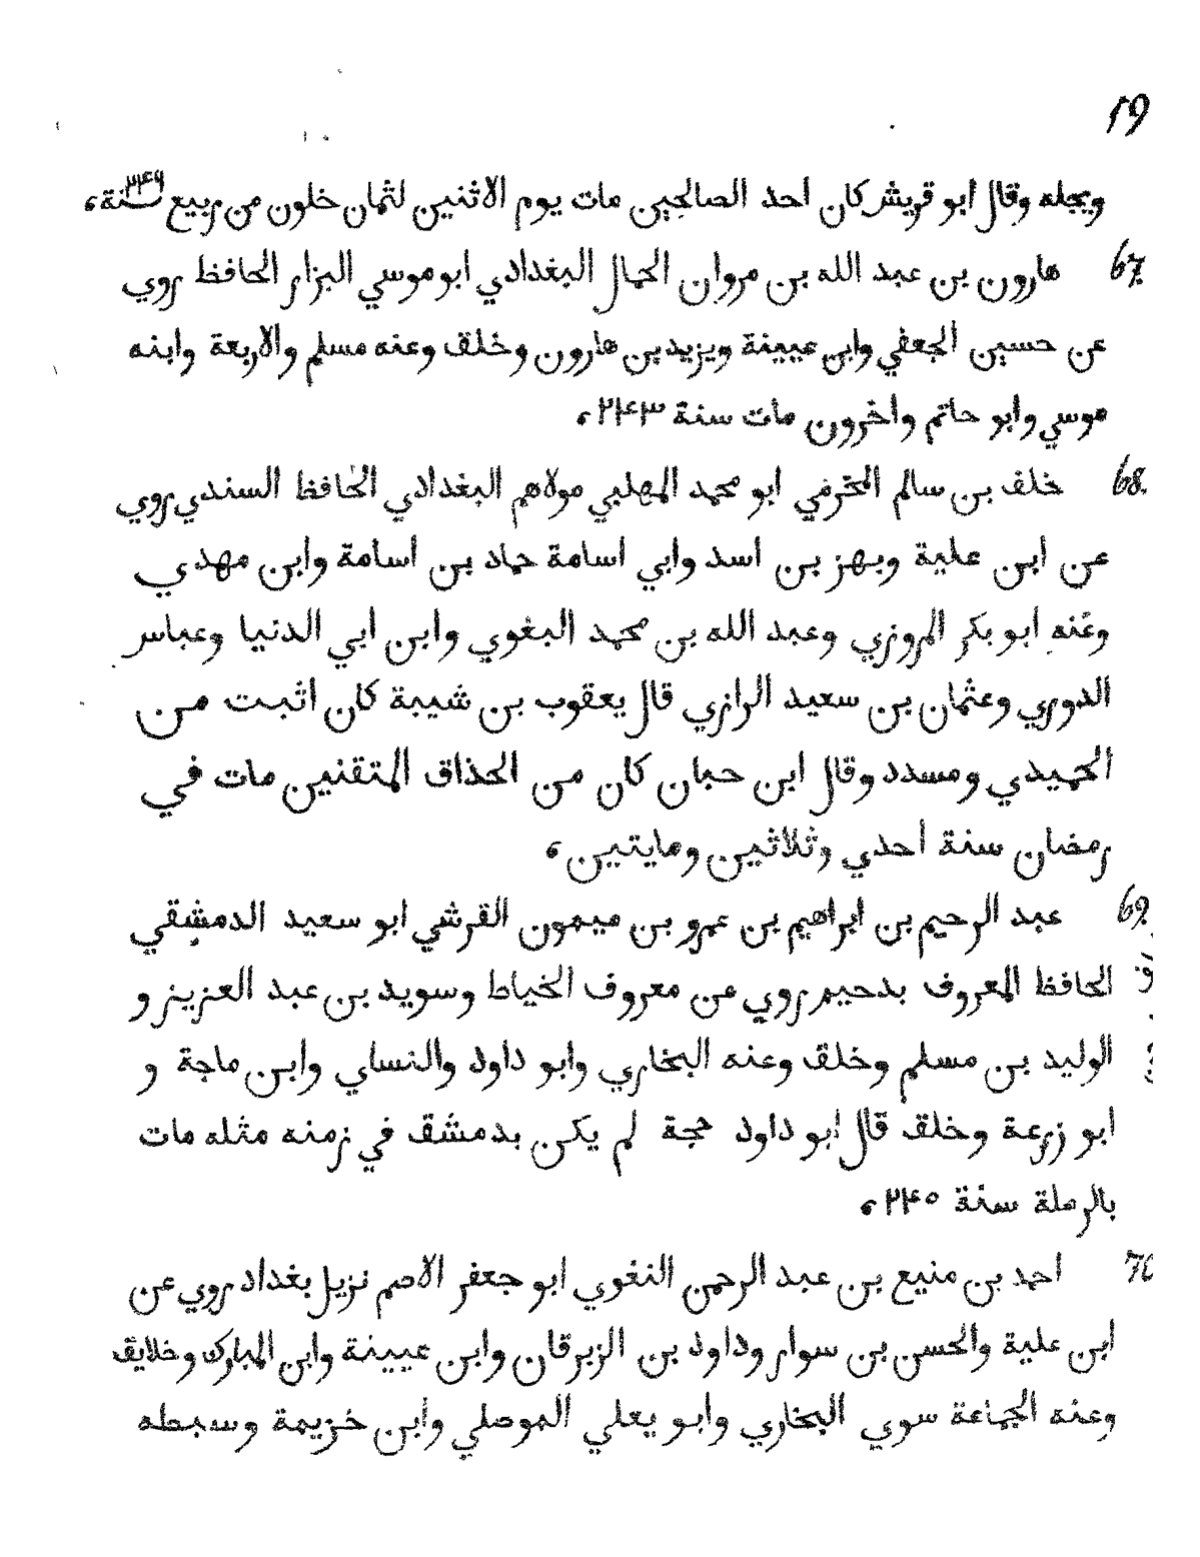 ١٩
ويجله وقال ابو قريش كان احد الصالحين مات يوم الاثنين لثمان خلون من ربيع سنة
67. هارون بن عبد الله بن مروان الحمال البغدادي ابو موسي البزار الحافظ روي
عن حسين الجعفي وابن عيينة ويزيد بن هارون وخلق وعنه مسلم والاربعة وابنه
موسي وابو حاتم واخرون مات سنة ٢٤٣،
68. خلف بن سالم المخرمي ابو محمد المهلبي مولاهم البغدادي الحافظ السندي روي
عن ابن علية وبهز بن اسد وابي اسامة حماد بن اسامة وابن مهدي
وعنه ابو بكر المروزي وعبد الله بن محمد البغوي وابن ابي الدنيا وعباس
الدوري وعثمان بن سعيد الرازي قال يعقوب بن شيبة كان اثبت من
الحميدي ومسدد وقال ابن حبان كان من الحذاق المتقنين مات في
رمضان سنة احدي وثلاثين ومايتين،
69. عبد الرحيم بن ابراهيم بن عمرو بن ميمون القرشي ابو سعيد الدمشقي
الحافظ المعروف بدحيم روي عن معروف الخياط وسويد بن عبد العزيز و
الوليد بن مسلم وخلق وعنه البخاري وابو داود والنساي وابن ماجة و
ابو زرعة وخلق قال ابو داود حجة لم يكن بدمشق في زمنه مثله مات
بالرملة سنة ٢٤٥،
70 احمد بن منيع بن عبد الرحمن النغوي ابو جعفر الاصم نزيل بغداد روي عن
ابن علية والحسن بن سوار وداود بن الزبرقان وابن عيينة وابن المبارك وخلايق
وعنه الجماعة سوي البخاري وابو يعلي الموصلي وابن خزيمة وسبطه